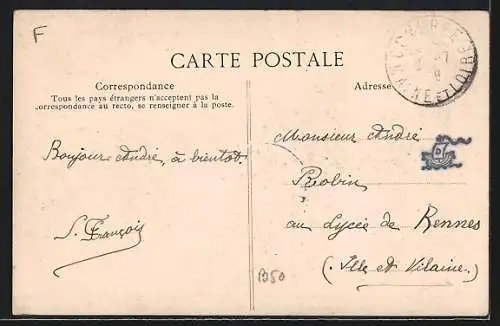 F
CARTE POSTALE
Correspondance
Tous les pays étrangers n'acceptent pas la
correspondance au recto, se renseigner à la poste.
Adresse
MAINE ET LOIRE
Bonjour André, à bientôt.
S. François
Monsieur André
Robin
au Lycée de Rennes
(Ille et Vilaine.)
B50